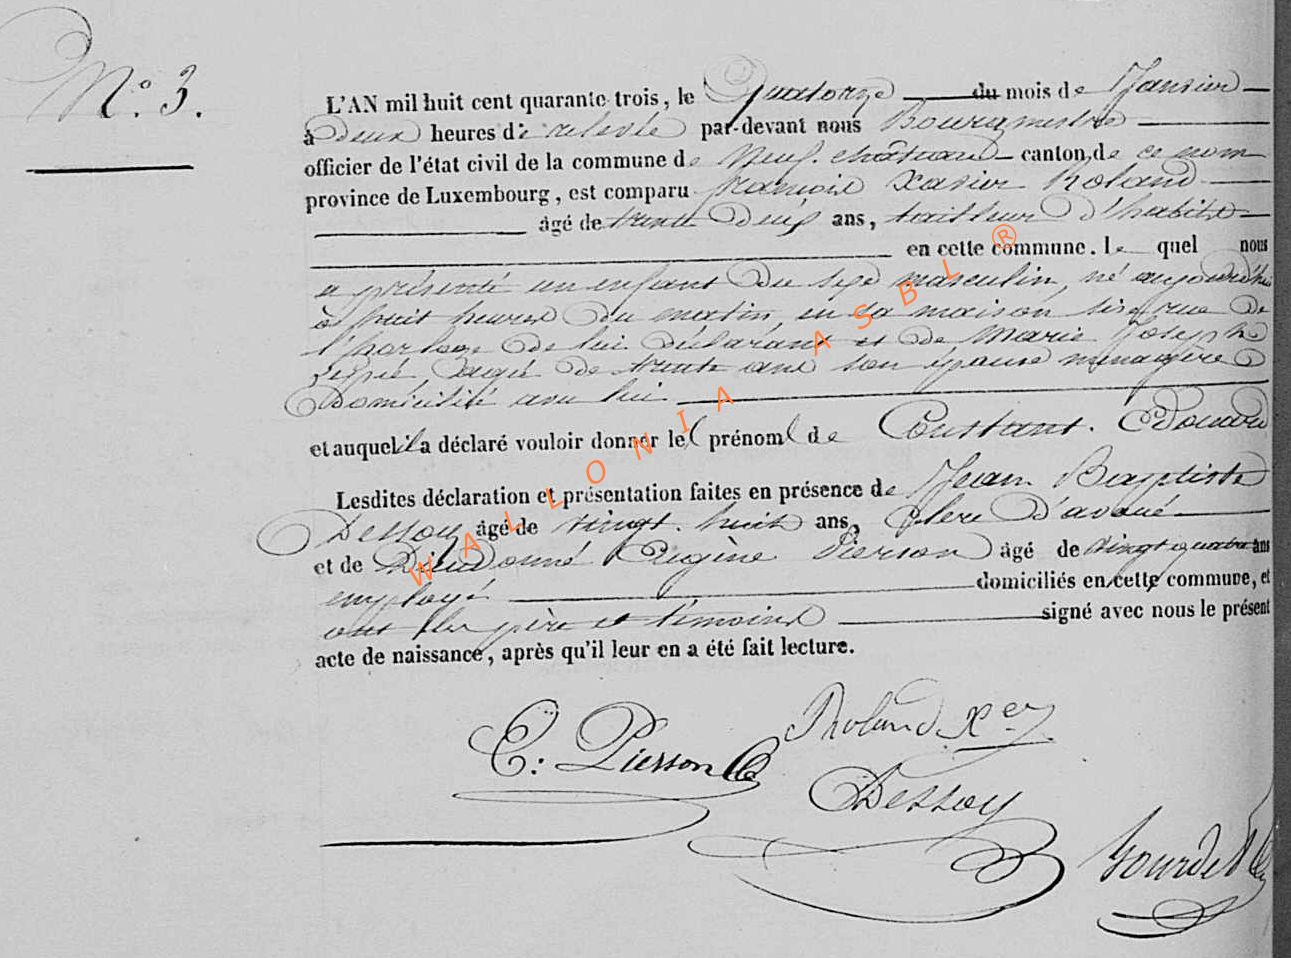 N.° 3.
L'AN mil huit cent quarante-trois, le Quatorze du mois de Janvier
à Deux heures de relevée par-devant nous Bourgmestre
officier de l'état civil de la commune de Neufchâteau canton de ce nom
province de Luxembourg, est comparu François Xavier Roland
âgé de trente Deux ans, tailleur D'habits
en cette commune. le quel nous
a présenté un enfant Du sexe masculin, né aujourd'hui
à huit heures Du matin, en sa maison sise rue De
l'horloge De lui Déclarant et de Marie Joseph
âgée De trente ans son épouse ménagère
Domiciliée avec lui
et auquel il a déclaré vouloir donner le prénom de Constant. Edouard
Lesdites déclaration et présentation faites en présence de Jean Baptiste
Dessoy âgé de vingt huit ans, Clerc D'avoué
et de Dieudonné Eugène Pierson âgé de vingt quatre ans
employé domiciliés en cette commune, et
ont les père et témoins signé avec nous le présent
acte de naissance, après qu'il leur en a été fait lecture.
E: Pierson Roland Xer
Dessoy
WALLONIA ASBL ®